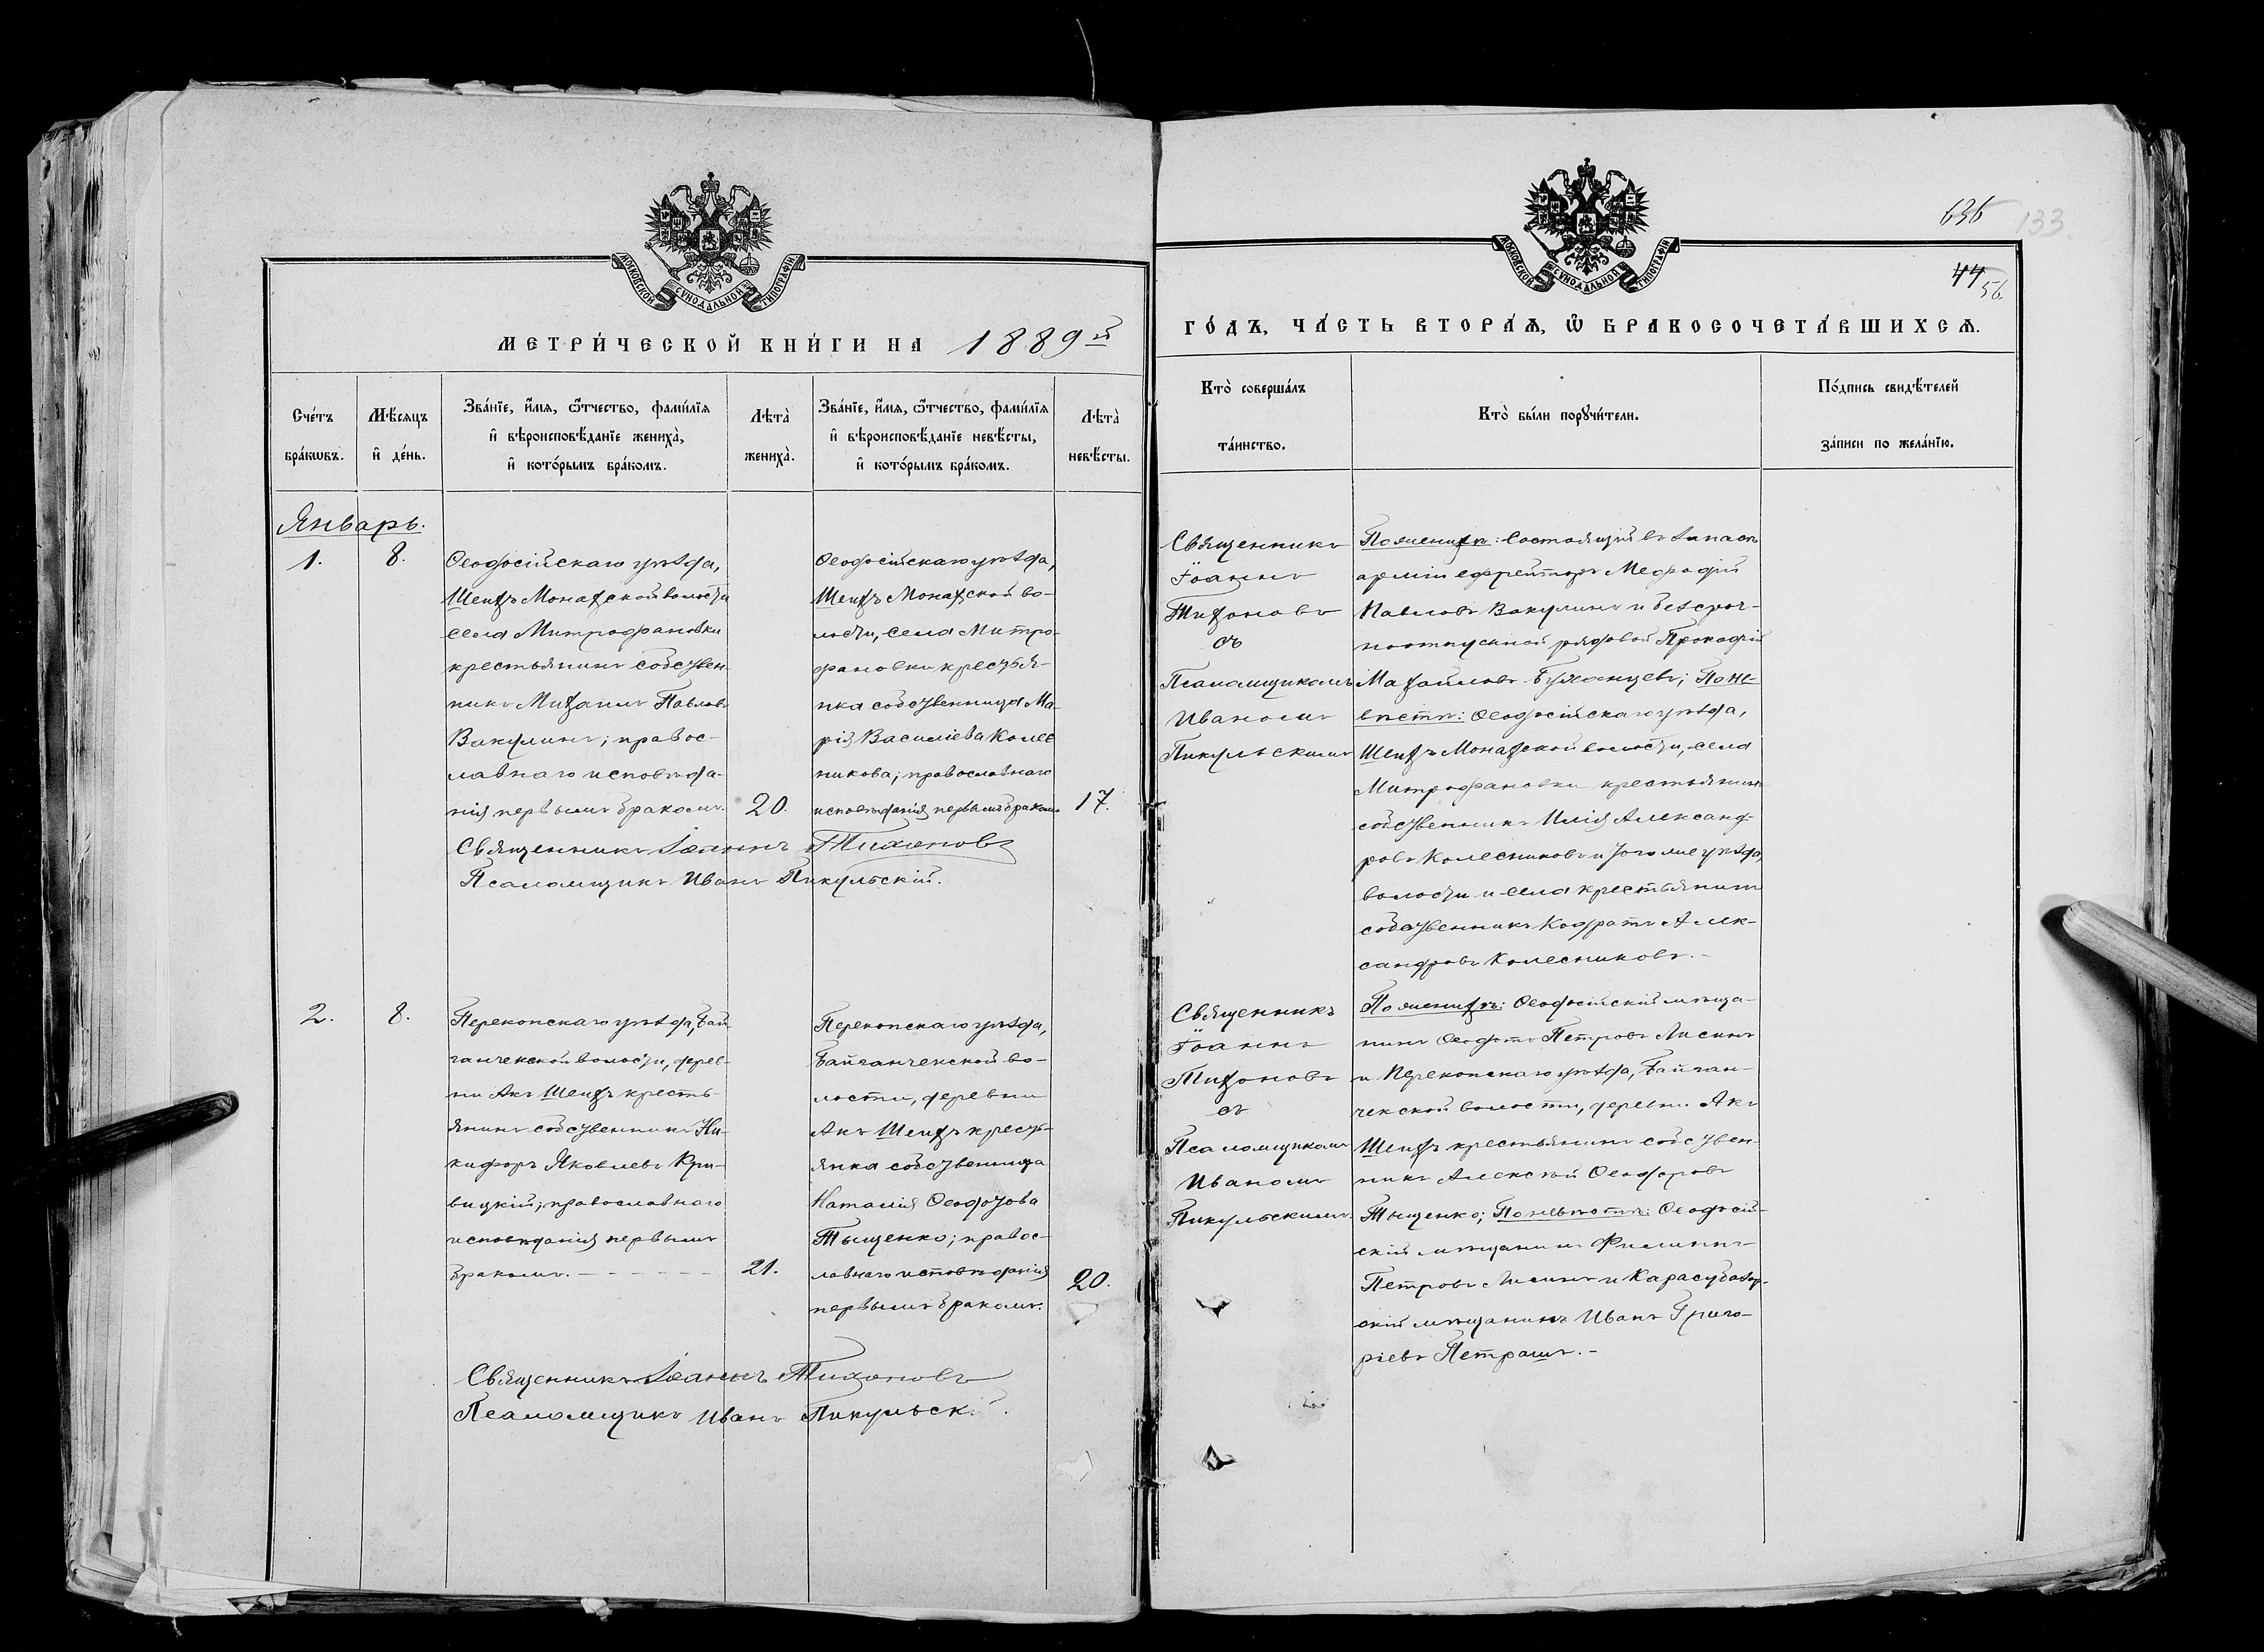 МОСКОВСКОЙ СѴНОДАЛЬНОЙ ТИПОГРАФІИ
МЕТРИ́ЧЕСКОЙ КНИ́ГИ НА 1889й
Сче́тъ бра́кѡвъ.
Мѣ́сяцъ и҆ де́нь.
Зва́нїе, и҆́мѧ, ѻ҆́тчество, фами́лїѧ
и҆ вѣроисповѣ́данїе жениха̀,
и҆ кото́рымъ бра́комъ.
Лѣта̀ жениха̀.
Зва́нїе, и҆́мѧ, ѻ҆́тчество, фами́лїѧ
и҆ вѣроисповѣ́данїе невѣ́сты,
и҆ кото́рымъ бра́комъ.
Лѣта̀ невѣ́сты.
Январь.
1.
8.
Ѳеодосійскаго уѣзда,
Шеихъ Монахской волости
села Митрофановки
крестьянинъ собствен-
никъ Михаилъ Павловъ
Вакулинъ; правос-
лавнаго исповѣда-
нія первымъ бракомъ.
20.
Ѳеодосійскаго уѣзда,
Шеихъ Монахской во-
лости, села Митро-
фановки крестья-
нка собственница Ма-
рія Василіева Колес
никова; православнаго
исповѣданія первымъ бракомъ
17.
Священникъ Іоаннъ Тихоновъ
Псаломщикъ Иванъ Пикульскій.
2.
8.
Перекопскаго уѣзда, Бай
ганчекской волости, дерев-
ни Акъ Шеихъ кресть-
янинъ собственникъ Ни-
кифоръ Яковлевъ Кри-
вицкій; православнаго
исповѣданія первымъ
бракомъ.
21.
Перекопскаго уѣзда,
Байганчекской во-
лости, деревни
Акъ Шеихъ кресть-
янка собственница
Наталія Ѳеодотова
Тыщенко; правос-
лавнаго исповѣданія
первымъ бракомъ.
20.
Священникъ Іоаннъ Тихоновъ
Псаломщикъ Иванъ Пикульскій.
636 133
МОСКОВСКОЙ СѴНОДАЛЬНОЙ ТИПОГРАФІИ
44
56.
ГО́ДЪ, ЧА́СТЬ ВТОРА́Ѧ, Ѡ҆ БРАКОСОЧЕТА́ВШИХСѦ.
Кто̀ соверша́лъ
та́инство.
Кто̀ бы́ли порꙋчи́тели.
По́дпись свидѣ́телей
за́писи по жела́нїю.
Священникъ
Іоаннъ
Тихоновъ
съ
Псаломщикомъ
Иваномъ
Пикульскимъ
По женихѣ: Состоящій въ запасѣ
арміи ефрейторъ Меѳодій
Павловъ Вакулинъ и безсроч-
ноотпускной рядовой Прокофій
Махайловъ; По не-
вѣстѣ: Ѳеодосійскаго уѣзда,
Шеихъ Монахской волости, села
Митрофановки крестьянинъ
собственникъ Илія Александ-
ровъ Колесниковъ и того же уѣзда,
волости и села крестьянинъ
собственникъ Кодратъ Алек-
сандровъ Колесниковъ.-
Священникъ
Іоаннъ
Тихоновъ
съ
Псаломщикомъ
Иваномъ
Пикульскимъ.
По женихѣ: Ѳеодосійскій мѣща-
нинъ Ѳеодотъ Петровъ Лисинъ
и Перекопскаго уѣзда, Байган-
чекской волости, деревни Акъ
Шеихъ крестьянинъ собствен-
никъ Алексѣй Ѳеодоровъ
Тыщенко; По невѣстѣ: Ѳеодосій-
скій мѣщанинъ Филиппъ
Петровъ Лисинъ и Карасубазар-
скій мѣщанинъ Иванъ Григо-
ріевъ Петрашъ.-